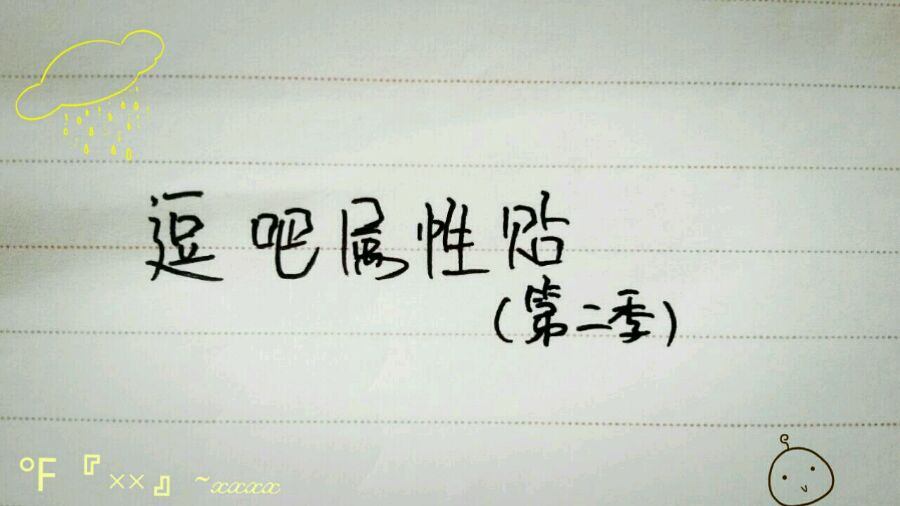 逗吧属性贴
(第二季)
°F『××』~xxxxx